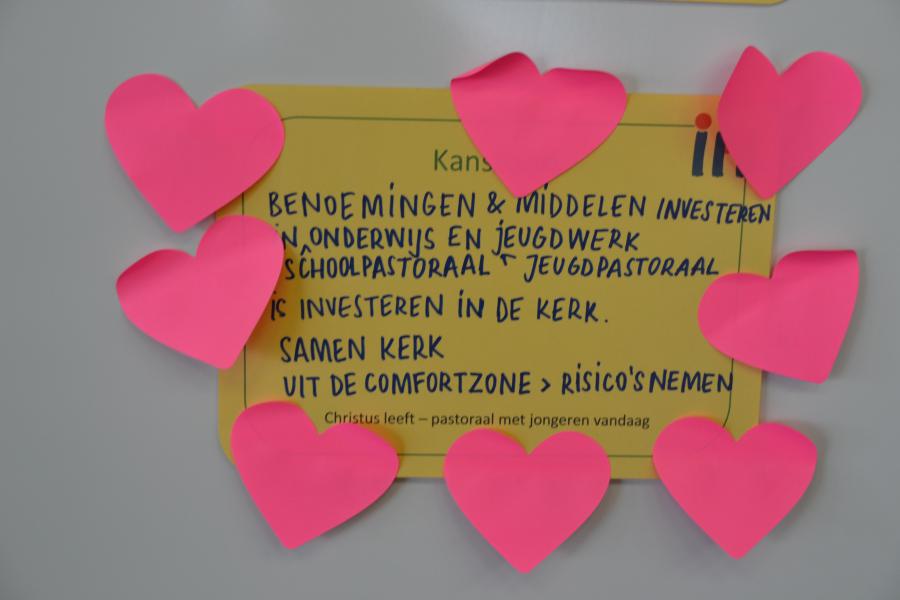 Kans
BENOEMINGEN & MIDDELEN INVESTEREN
IN ONDERWIJS EN JEUGDWERK
SCHOOLPASTORAAL JEUGDPASTORAAL
IS INVESTEREN IN DE KERK.
SAMEN KERK
UIT DE COMFORTZONE > RISICO'S NEMEN
Christus leeft – pastoraal met jongeren vandaag